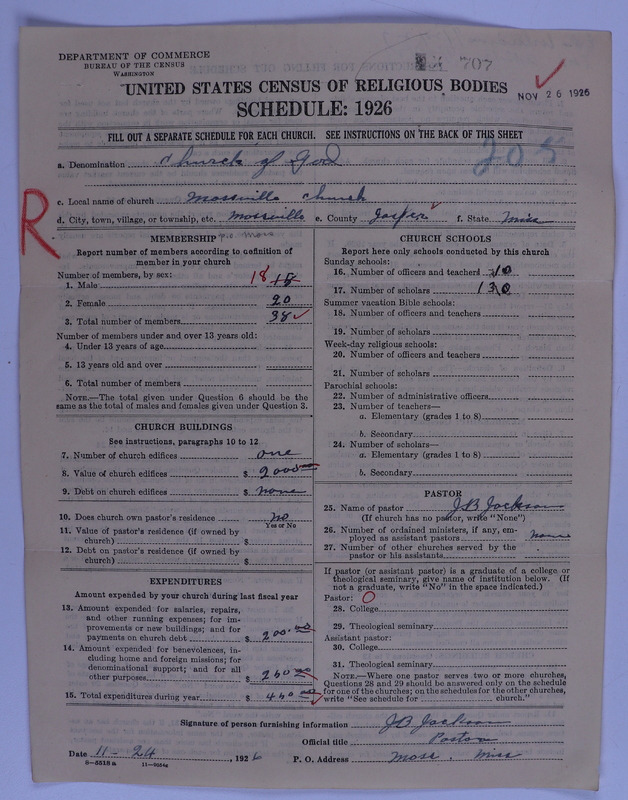 DEPARTMENT OF COMMERCE
BUREAU OF THE CENSUS
WASHINGTON
707
UNITED STATES CENSUS OF RELIGIOUS BODIES
NOV 26 1926
SCHEDULE: 1926
FILL OUT A SEPARATE SCHEDULE FOR EACH CHURCH. SEE INSTRUCTIONS ON THE BACK OF THIS SHEET
205
a. Denomination Church of God
c. Local name of church Mossville Church
d. City, town, village, or township, etc. Mossville e. County Jasper f. State Miss
R
MEMBERSHIP
Report number of members according to definition of
member in your church
Number of members, by sex:
1. Male 18 18
2. Female 20
3. Total number of members 38
Number of members under and over 13 years old:
4. Under 13 years of age
5. 13 years old and over
6. Total number of members
NOTE.—The total given under Question 6 should be the
same as the total of males and females given under Question 3.
CHURCH BUILDINGS
See instructions, paragraphs 10 to 12
7. Number of church edifices one
8. Value of church edifices $ 2000.00
9. Debt on church edifices $ none
10. Does church own pastor's residence no
Yes or No
11. Value of pastor's residence (if owned by
church) $
12. Debt on pastor's residence (if owned by
church) $
EXPENDITURES
Amount expended by your church during last fiscal year
13. Amount expended for salaries, repairs,
and other running expenses; for im-
provements or new buildings; and for
payments on church debt $ 200.00
14. Amount expended for benevolences, in-
cluding home and foreign missions; for
denominational support; and for all
other purposes $ 260.00
15. Total expenditures during year $ 460.00
CHURCH SCHOOLS
Report here only schools conducted by this church
Sunday schools:
16. Number of officers and teachers 10
17. Number of scholars 130
Summer vacation Bible schools:
18. Number of officers and teachers
19. Number of scholars
Week-day religious schools:
20. Number of officers and teachers
21. Number of scholars
Parochial schools:
22. Number of administrative officers
23. Number of teachers—
a. Elementary (grades 1 to 8)
b. Secondary
24. Number of scholars—
a. Elementary (grades 1 to 8)
b. Secondary
PASTOR
25. Name of pastor J B Jackson
(If church has no pastor, write "None")
26. Number of ordained ministers, if any, em-
ployed as assistant pastors none
27. Number of other churches served by the
pastor or his assistants
If pastor (or assistant pastor) is a graduate of a college or
theological seminary, give name of institution below. (If
not a graduate, write "No" in the space indicated.)
Pastor: O
28. College
29. Theological seminary
Assistant pastor:
30. College
31. Theological seminary
NOTE.—Where one pastor serves two or more churches,
Questions 28 and 29 should be answered only on the schedule
for one of the churches; on the schedules for the other churches,
write "See schedule for church."
Signature of person furnishing information J B Jackson
Official title Pastor
Date 11-24, 1926 P. O. Address Moss, Miss
8-5518a 11-9054a